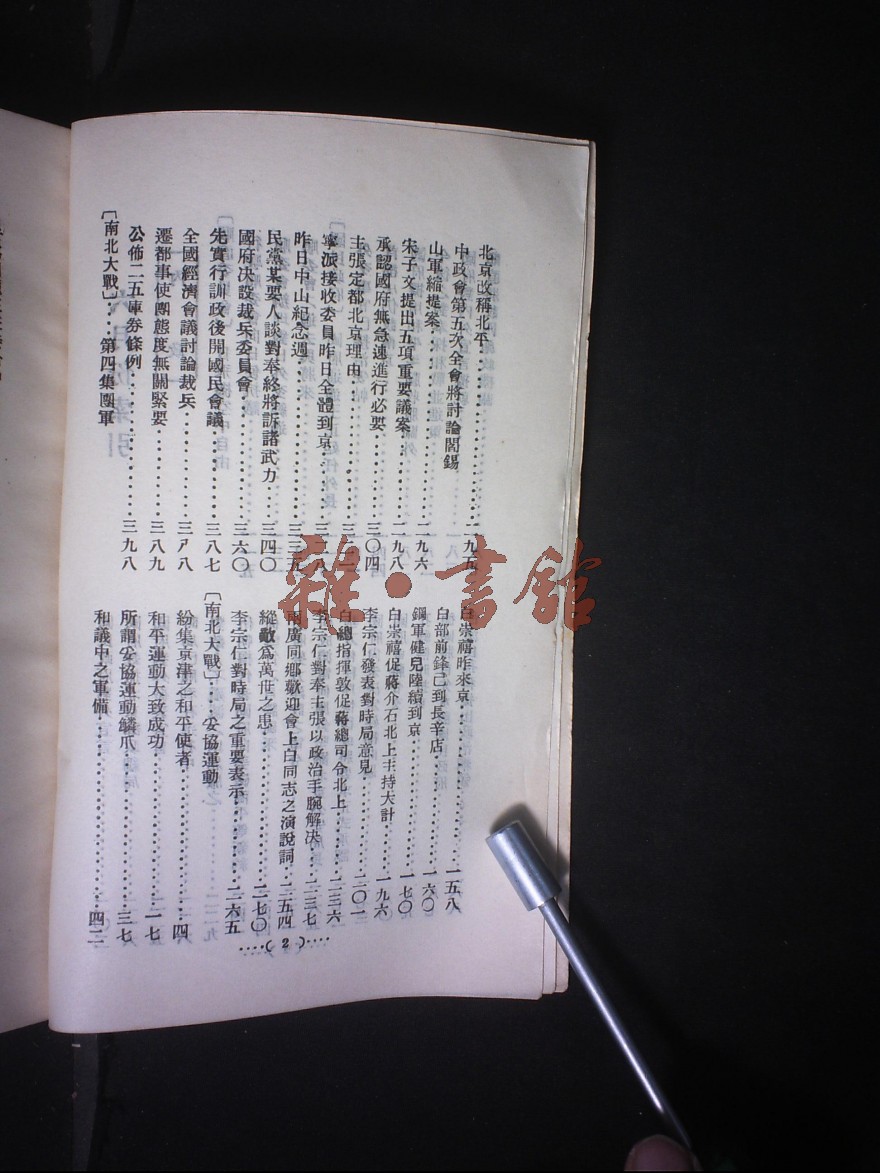 北京改稱北平……一九五
中政會第五次全會將討論閻錫
山軍縮提案……二九六
宋子文提出五項重要議案……二九八
承認國府無急速進行必要……三〇四
主張定都北京理由
寧派接收委員昨日全體到京
昨日中山紀念週……三三五
民黨某要人談對奉終將訴諸武力……三四〇
國府決設裁兵委員會……三六〇
先實行訓政後開國民會議……三八七
全國經濟會議討論裁兵……三八八
遷都事使團態度無關緊要……三八九
公佈二五庫券條例……三九八
〔南北大戰〕……第四集團軍
白崇禧昨來京……一五八
白部前鋒已到長辛店……一六〇
鋼軍健兒陸續到京……一七〇
白崇禧促蔣介石北上主持大計……一九六
李宗仁發表對時局意見……二〇一
白總指揮敦促蔣總司令北上……二三六
李宗仁對奉主張以政治手腕解決……二三七
兩廣同鄉歡迎會上白同志之演說詞……二五四
縱敵爲萬世之患……二七〇
李宗仁對時局之重要表示……二六五
〔南北大戰〕……妥協運動
紛集京津之和平使者……四
和平運動大致成功……一七
所謂妥協運動鱗爪……三七
和議中之軍備……四二
……(2)……
雜·書館